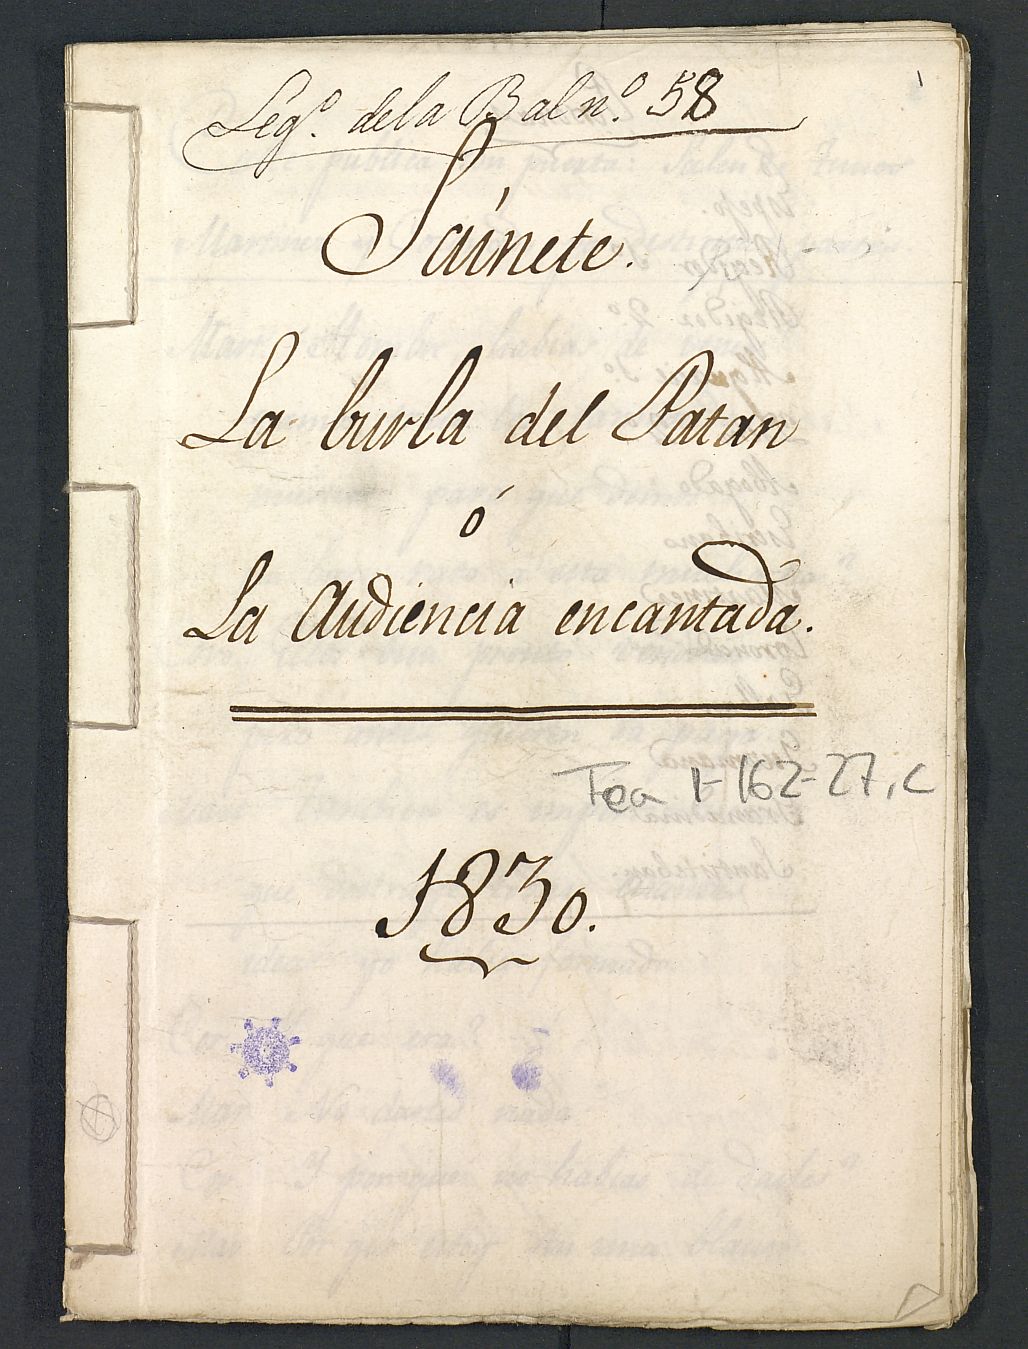 1
Leg.º de la B al n.º 58
Saínete.
La burla del Patan
ó
La Audiencia encantada.
Tea 1-162-27, C
1830.